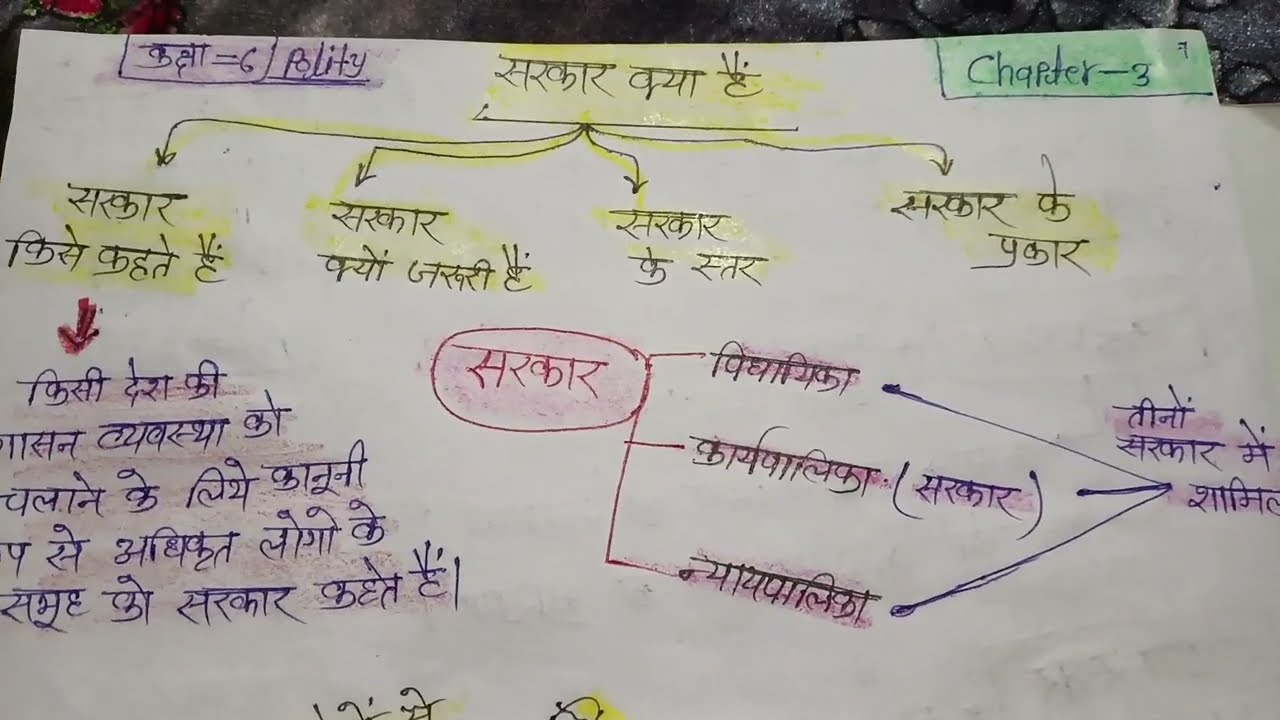 कक्षा =6 Polity
सरकार क्या हैं
Chapter-3
सरकार
किसे कहते हैं
सरकार
क्यों जरूरी हैं
सरकार
के स्तर
सरकार के
प्रकार
किसी देश की
शासन व्यवस्था को
चलाने के लिये कानूनी
से अधिकृत लोगो के
समूह को सरकार कहते हैं।
सरकार
विधायिका
कार्यपालिका (सरकार)
न्यायपालिका
तीनों
सरकार में
शामिल